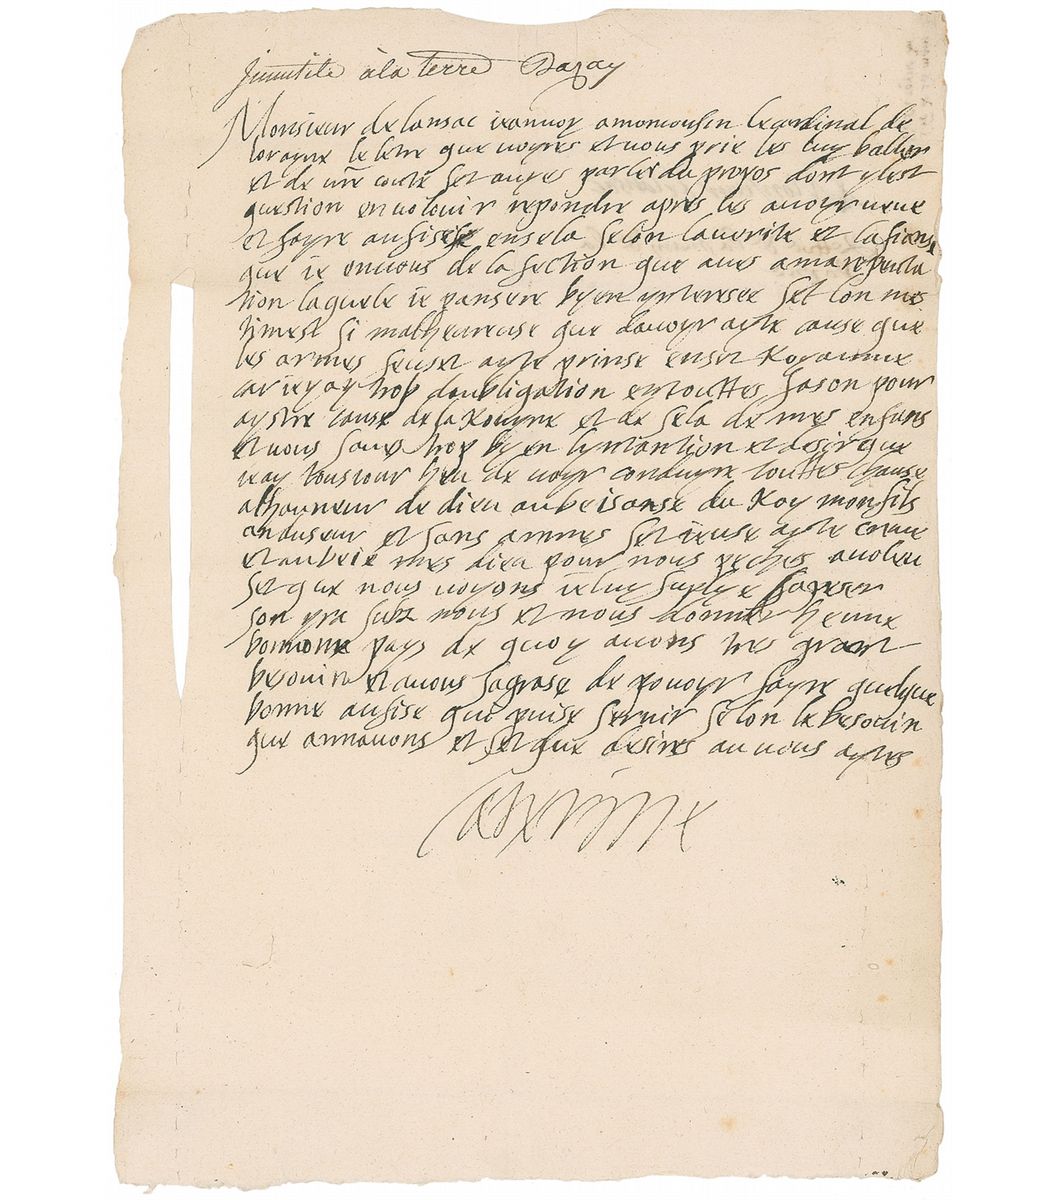 Jnnutile à la terre Dazay
Monsieur de lansac ie anvoy a mon cousin le cardinal de
lorayne le letre que voyres et vous prie les luy ballier
et de vre couté set aupres parler du propos dont yl est
question en voulouir repondre apres les avoyr veue
et fayre aufise ensela selon la verite et la fianse
que ie en vous de la fection que aves a ma reputa
tion laquele ie panseré byen ynteresee set lon me
timest si malheureuse que davoyr ayte cause que
les armes feuset ayte prinse en set Royaume
car ie y ay trop daubligation en touttes fason pour
aystre cause de sa Rouyne et de sela de mes enfans
et vous saves trop byen lyntantion et desir que
iay tousiour heu de voyr conduyre touttes chause
alhonneur de dieu aubeisanse du Roy mon fils
an duseur et sans armes set ieuse ayte creue
et aubeie mes dieu pour nous peches a volleu
set que nous voyons ie luy suplye
son yre sur nous et nous donner heune
bonne pays de quoy avons tres grant
besouin et a vous sa grase de povoyr fayre quelque
bonne aufise que puise servir selon le besouin
que an navons et set que desires au vous aystes
Caterine